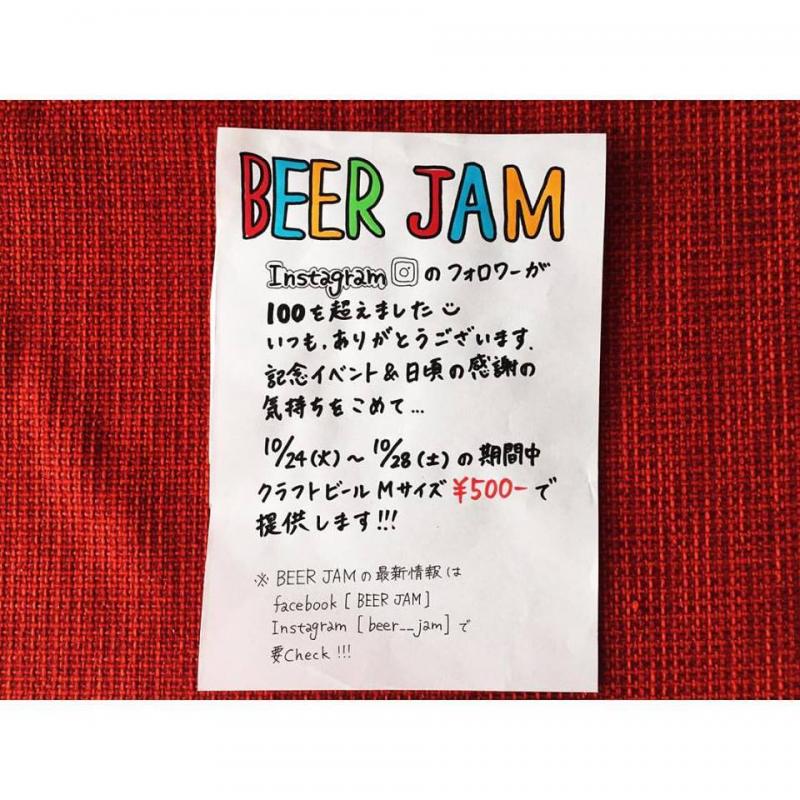 BEER JAM
Instagramのフォロワーが
100を超えました
いつも、ありがとうございます.
記念イベント&日頃の感謝の
気持ちをこめて...
10/24(火)～10/28(土)の期間中
クラフトビール Mサイズ ¥500-で
提供します!!!
※ BEER JAMの最新情報は
facebook [ BEER JAM ]
Instagram [ beer__jam ] で
要Check !!!